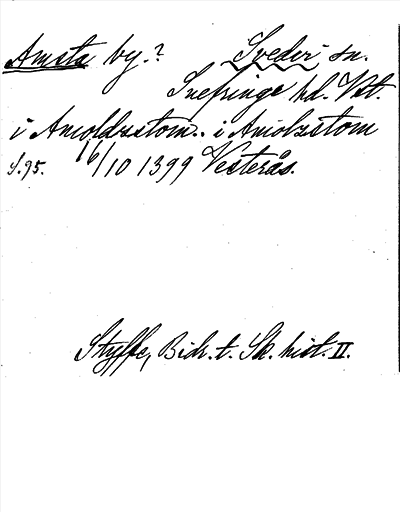 Amsta by.? Svedvi sn.
Snefringe hd. Vstl.
i Amoldzstom. i Amolzstom
S. 95. 16/10 1399 Vesterås.
Styffe, Bidr. t. Sk. hist. II.